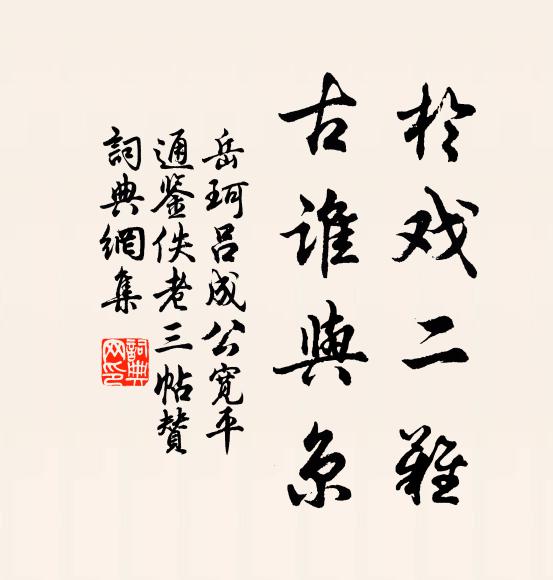 於戏二难
古谁與京
岳珂吕成公寛平
通鉴佚老三帖赞
詞典網集
詞典
网印